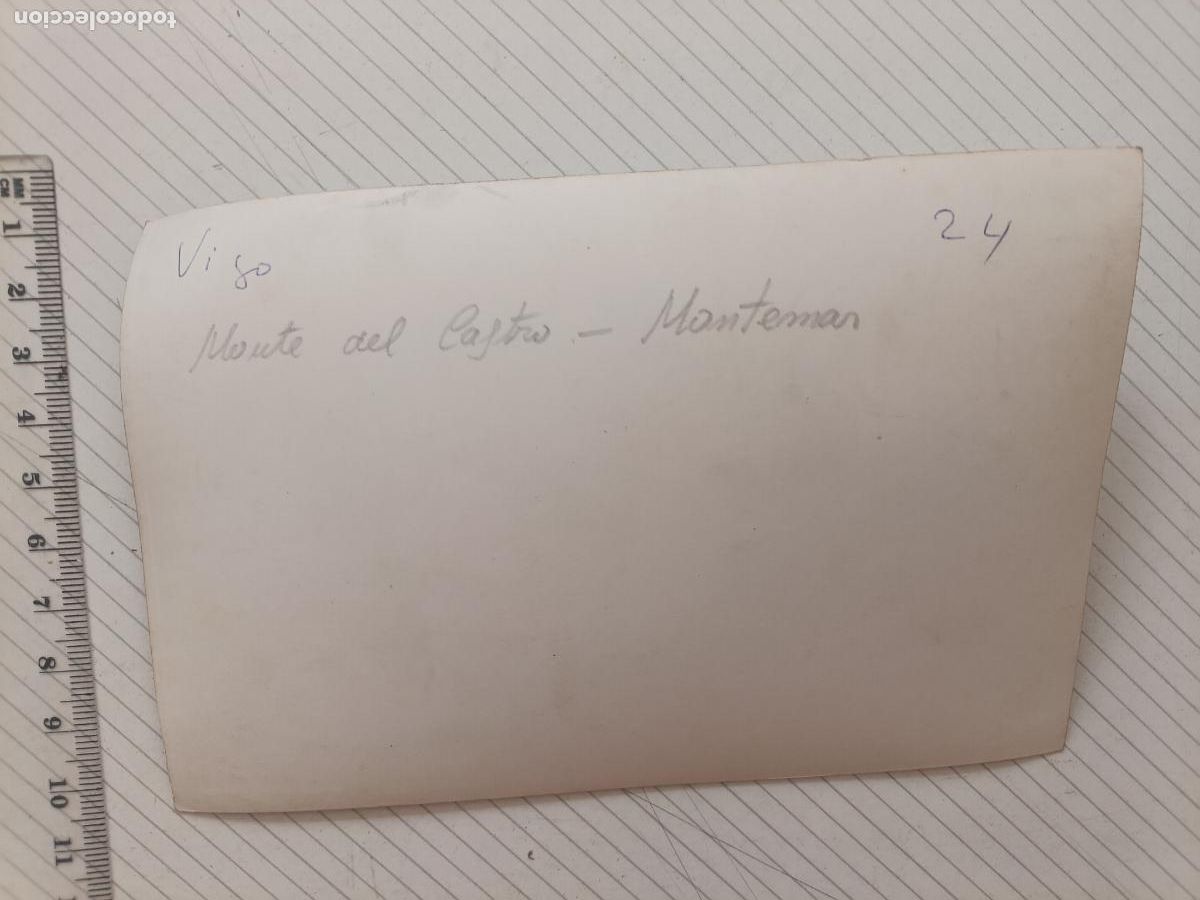 todocoleccion
Vigo 24
Monte del Castro - Montemar
MM
CM
1
2
3
4
5
6
7
8
9
10
11